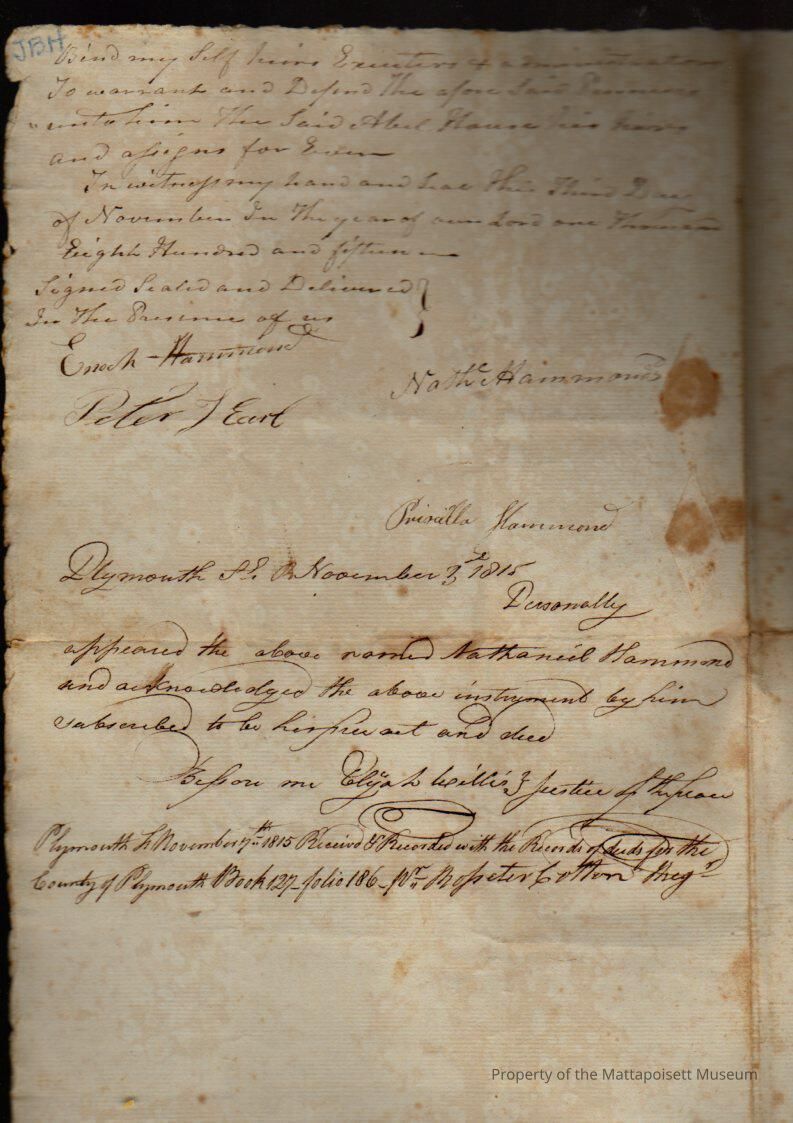 JBH
Bind my Self heirs Executers & administrators
To warrant and Defend the afore Said Premises
unto him The Said Abel House his heirs
and assigns for Ever
In witness my hand and Seal this Third Day
of November In The year of our Lord one Thousan
Eight Hundred and fifteen
Signed Sealed and Delivered
In The Presence of us
Enoch Hammond
Nathl Hammond
Peter T Earl
Priscilla Hammond
Plymouth Ss. November 3d 1815
Personally
appeared the above named Nathaniel Hammond
and acknowledged the above instrument by him
subscribed to be his free act and deed
Before me Elijah Willis Justice of the peace
Plymouth Ss November 7th 1815 Received & Recorded with the Records of deeds for the
County of Plymouth Book 127 folio 186 Pr Rosseter Cotton Regr
Property of the Mattapoisett Museum